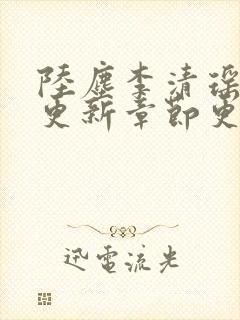 陸塵李清瑶
更新章節更
迅電流光